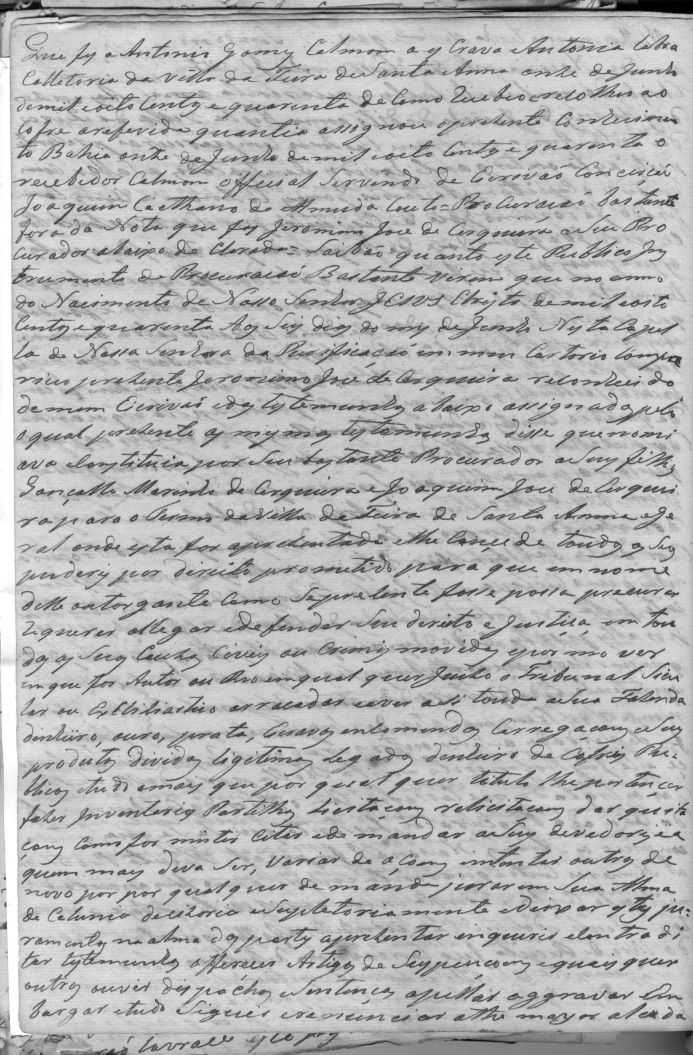 Que fes a Antonio Gomes Calmon a es Crava Antonia Cabra
Colletoria da Villa da Feira de Santa Anna onze de Junho
de mil oito Centos e quarenta de Como Recebeo e recolheo ao
Cofre a referida quantia assignou o prezente Conhecimen
to Bahia onze de Junho de mil oito Centos e quarenta o
recebedor Calmon official Servindo de Escrivaõ Conceicaõ
Joaquim Caethano de Almeida Couto = Procuraçaõ bastante
fora da Nota que fas Jeronimo Joze de Cerqueira a Seu Pro
curador abaixo de Clarado = Saibaõ quanto este Publico Jns
trumento de Procuraçaõ Bastante virem que no anno
do Nacimento de Nosso Senhor JESUS Christo de mil oito
Centos e quarenta Aos Seis dias do mes de Junho Nesta Capel
la de Nossa Senhora da Purificaçaõ em meu Cartorio Compa
receo prezente Jeronimo José de Cerqueira reconhecido
de mim Escrivaõ e das testemunhas abaixo assignadas pelo
o qual prezente as mesmas testemunhas disse que nomi
ava e Constituia por Seu bastante Procurador a Seus filhos
Gonçallo Marinho de Cerqueira e Joaquim Joze de Cerquei
ra para o Termo da Villa da Feira de Santa Anna e Ge
ral onde esta for aprezentada e lhe Concede toudos os Seus
puderes por direito prometido para que em nome
delle outorgante Como Se prezente fosse possa precurar
Requerer allegar e defender Seu direito e Justiça em tou
das as Suas Cauzas Civeis ou Crimes movidas e por mo ver
em que for Autor ou Reo em qual quer Juizo o Tribunal Sicu
lar ou Ecclisiastico arrecadar e aver a Si touda a Sua Fazenda
dinheiro, ouro, prata, Escravos encomendas Carregaçoens e Seus
productos dividas legitimas Legados dinheiro de Cofres Pu-
blicos e tudo o mais que por qual quer titulo lhe pertencer
fazer Jnventarios Partilhas Licitaçoens relicitaçoens dar quita
çoens Como for mister Citar e de mandar a Seus devedores e a
quem mais deva Ser, variar de açoens intentar outras de
novo por por qual quer de manda jurar em Sua Alma
de Calunia decizoria e Supletoriamente e Deixar estes ju-
ramentos na alma das partes aprezentar inquerir e Contradi
tar testemunhas offerecer Artigos de Suspeiçoens e quais quer
outros ouvir despachos e Sentenças apellar aggravar Em
bargar e tudo Siguir e renunciar athe mayor alçada